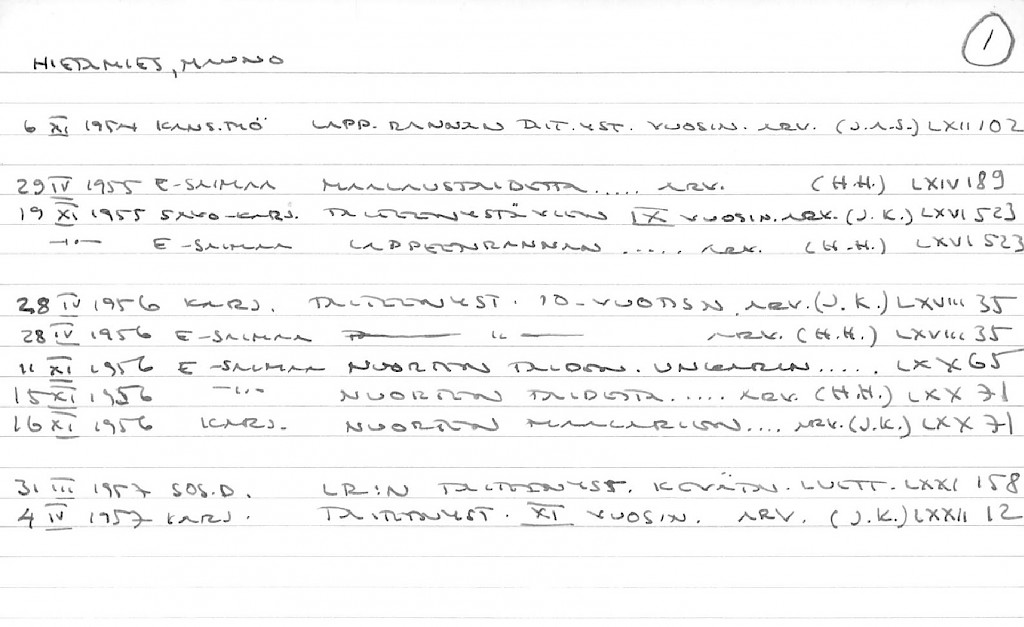 1
HIETAMIES, MAUNO
6 XI 1954 KANS.TYÖ LAPP. RANNAN TAIT. YST. VUOSIN. ARV. (J.A.S.) LXII 102
29 IV 1955 E-SAIMAA MAALAUSTAIDETTA..... ARV. (H.H.) LXIV 189
19 XI 1955 SAVO-KARJ. TAITEENYSTÄVIEN IX VUOSIN. ARV. (J.K.) LXVI 523
—"— E-SAIMAA LAPPEENRANNAN ..... ARV. (H.H.) LXVI 523
28 IV 1956 KARJ. TAITEENYST. 10-VUOTISN. ARV. (J.K.) LXVIII 35
28 IV 1956 E-SAIMAA —— " —— ARV. (H.H.) LXVIII 35
11 XI 1956 E-SAIMAA NUORTEN TAIDEN. UNKARIN..... LXX 65
15 XI 1956 —"— NUORTEN TAIDETTA..... ARV. (H.H.) LXX 71
16 XI 1956 KARJ. NUORTEN MAALARIEN.... ARV. (J.K.) LXX 71
31 III 1957 SOS.D. LR:N TAITEENYST. KEVÄTN. LUETT. LXXI 158
4 IV 1957 KARJ. TAITEENYST. XI VUOSIN. ARV. (J.K.) LXXII 12